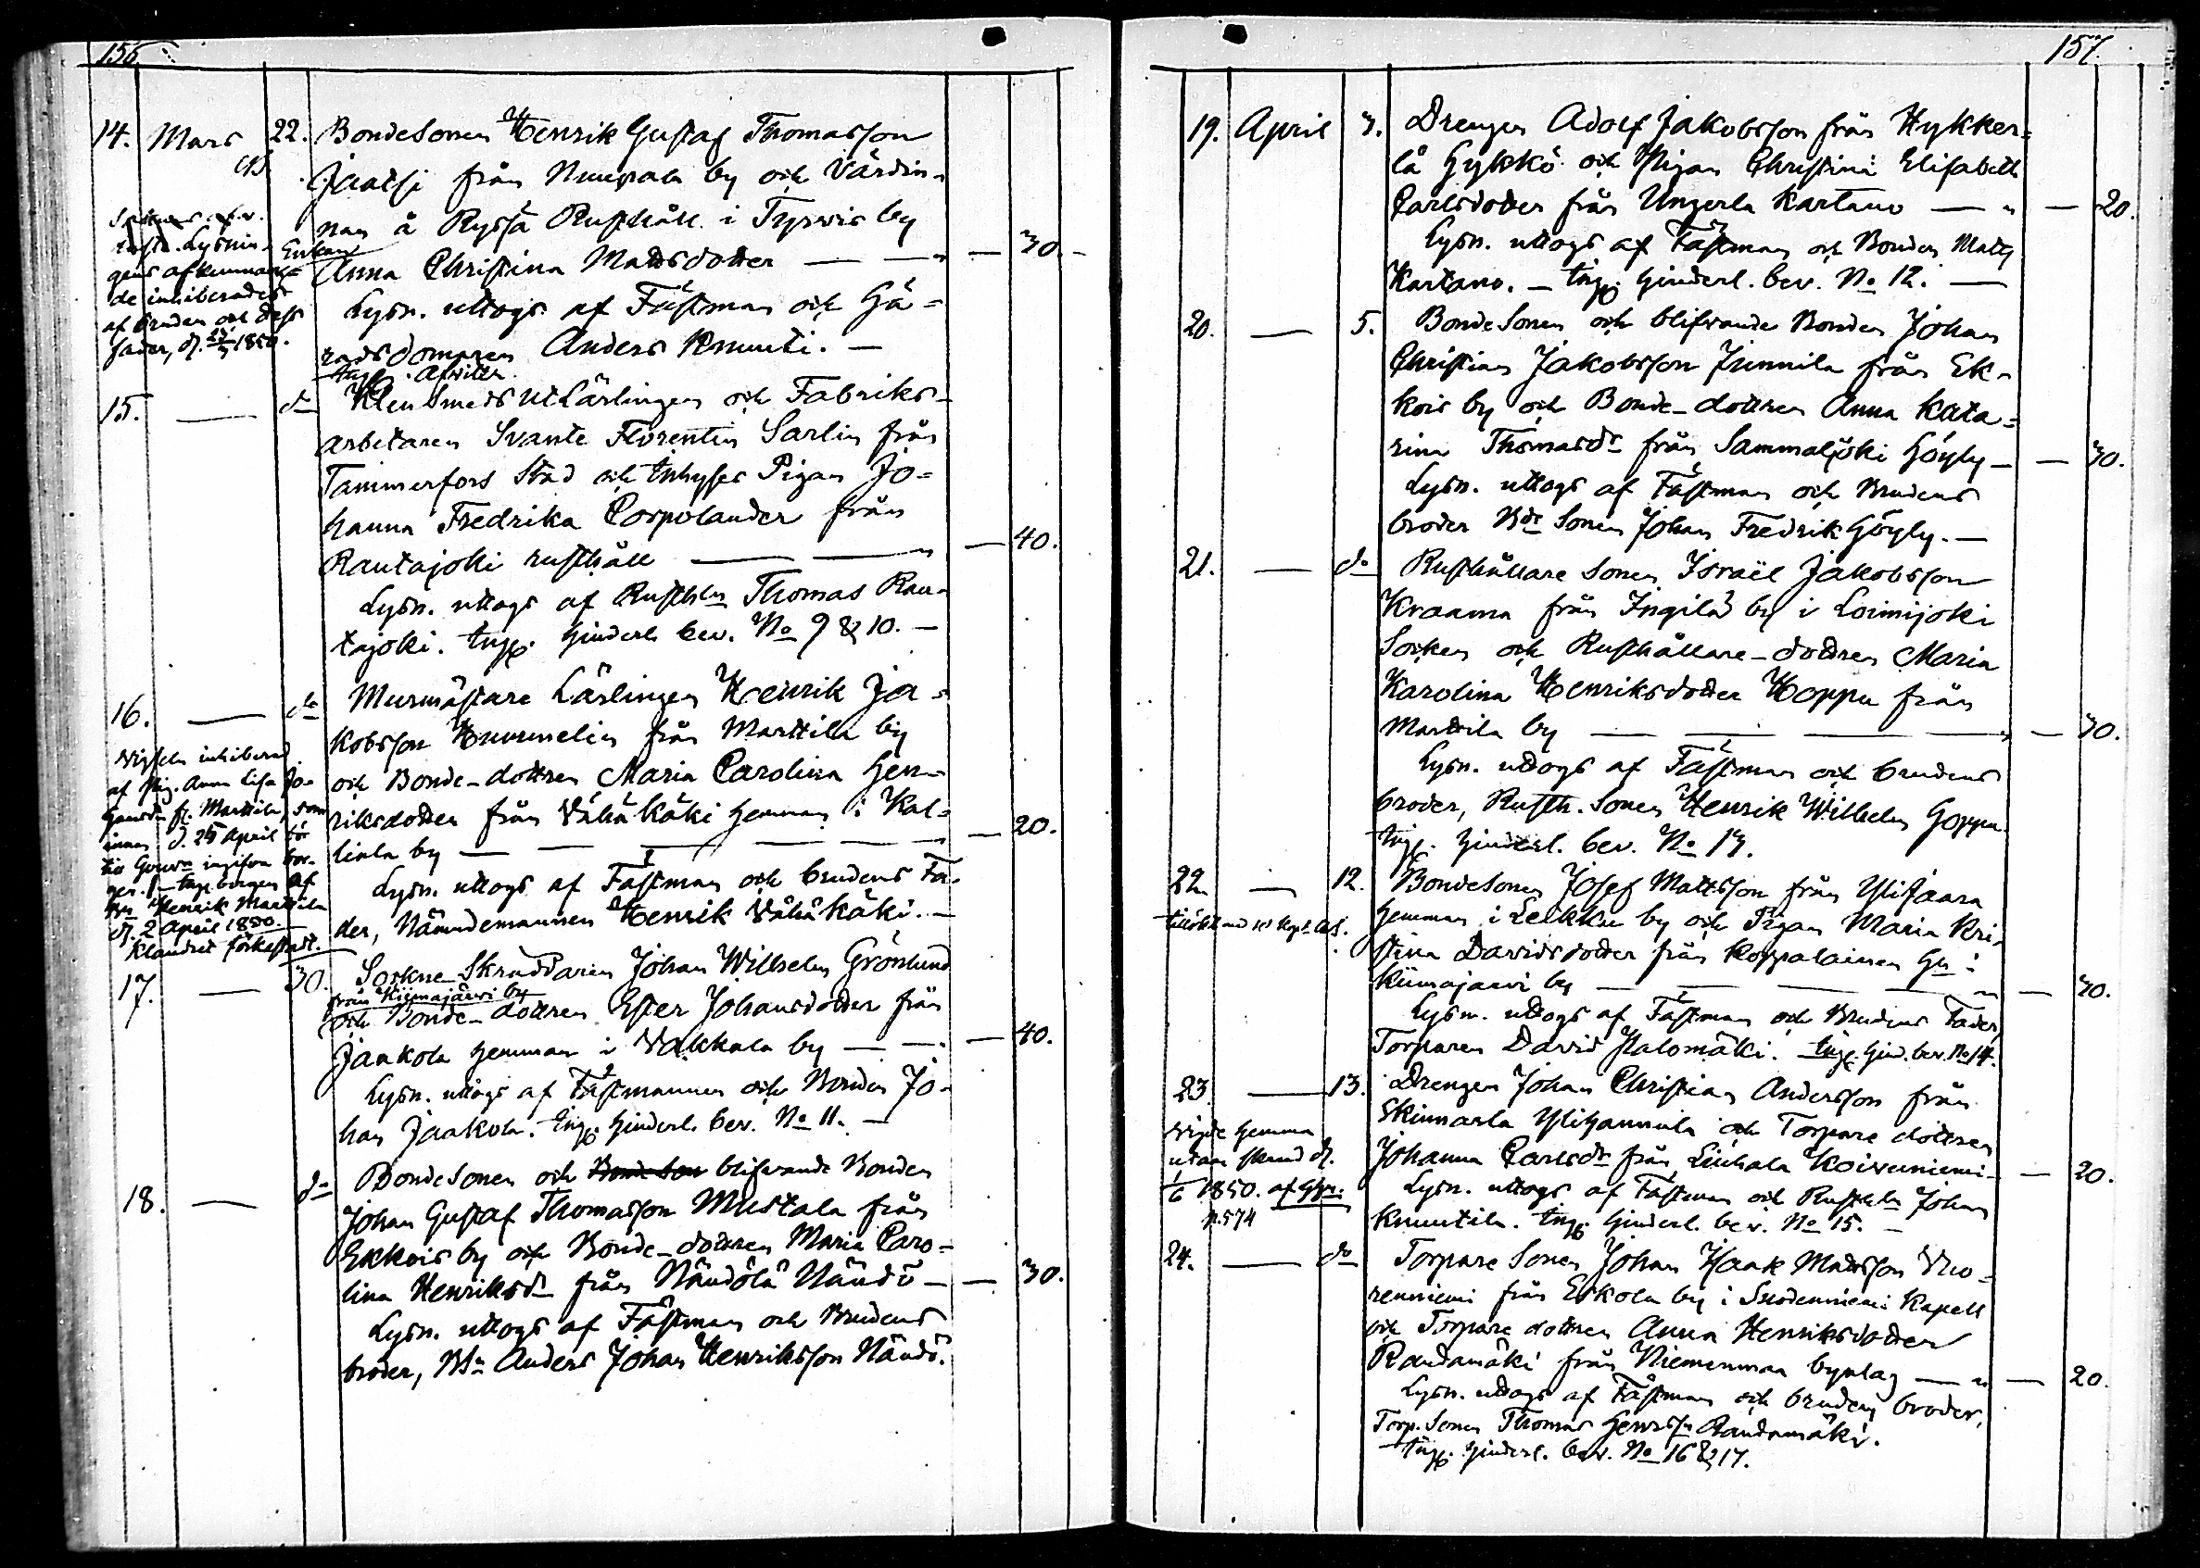 156
14. Mars 22. Bondesonen Henrik Gustaf Thomasson
Jaatsi från Nuupala by och Värdin-
nan å Ryssä Rusthåll i Tyrvis by
Enkan
Anna Christina Mattsdotter — — 30. -
Lysn. uttogs af Fästman och Hä-
radsdomaren Anders Knuuti. —
lysnin-
gens afkunnan-
de inhiberades
af bruden och dess
fader, d. 1850.
15. — do Klensmeds utLärlingen och Fabriks-
arbetaren Svante Florentin Sarlin från
Tammerfors Stad och Inhyses Pigan Jo-
hanna Fredrika Corpolander från
Rautajoki rusthåll — — 40.
Lysn. uttogs af Rusthln Thomas Rau-
tajoki. Ingp. hinderl. bev. No 9 & 10. —
16. — do Murmästare Lärlingen Henrik Ja-
kobsson Hummelin från Marttila by
och Bonde-dottren Maria Carolina Hen-
riksdotter från Vähä Käki hemman i Kal-
liala by — — — — 20.
Lysn. uttogs af Fästman och brudens Fa-
der, Nämndemannen Henrik Vähä Käki. —
Vigseln inhiberad
af Pig. Anna Lisa Jo-
hansdr fr. Marttila, som
innan d. 24 April bör
Henrik Marttila
d. 2 April 1850.
Klandret förkastadt.
17. — 30. Sockne-Skräddaren Johan Wilhelm Grönlund
från Kiimajärvi by
och Bonde-dottren Ester Johansdotter från
Jaakola hemman i Vakkala by — — 40.
Lysn. uttogs af Fästmannen och Bonden Jo-
han Jaakola. Ingp. hinderl. bev. No 11. —
18. — do Bondesonen och Bonde Son blifvande Bonden
Johan Gustaf Thomasson Mustala från
Ekkois by och Bonde-dottren Maria Caro-
lina Henriksdr från Nändölä Nändö — — 30.
Lysn. uttogs af Fästman och Brudens
broder, Bdn Anders Johan Henriksson Nändö.
157.
19. April 3. Drengen Adolf Jakobsson från Hykker-
lä Hykkö och Pigan Christina Elisabeth
Carlsdotter från Ungerla Kartano — — 20.
Lysn. uttogs af Fästman och Bonden Matts
Kartano. — Ingp. hinderl. bev. No 12. —
20. — 5. Bondesonen och blifvande Bonden Johan
Christian Jakobsson Junnila från Ek-
kois by och Bonde-dottren Anna Kata-
rina Thomasdr från Sammaljoki Höyly — — 30.
Lysn. uttogs af Fästman och Brudens
broder Bde Sonen Johan Fredrik Höyly. —
21. — do Rusthållare Sonen Israël Jakobsson
Kraama från Ingilä by i Loimijoki
Socken och Rusthållare-dottren Maria
Karolina Henriksdotter Hoppu från
Marttila by — — — — 30.
Lysn. uttogs af Fästman och brudens
broder, Rusth. Sonen Henrik Wilhelm Hoppu.
Ingp. hinderl. bev. No 13.
22. — 12. Bondesonen Josef Mattsson från Ylistaara
hemman i Leikku by och Pigan Maria Kri-
stina Davidsdotter från Koppalainen Hn i
Kiimajärvi by — — — — 30.
Lysn. uttogs af Fästman och Brudens Fader,
Torparen David Palomäki. Ingp. hind. bev. No 14.
23. — 13. Drengen Johan Christian Andersson från
Skinnarla Ylihannula och Torpare dottren
Johanna Carlsdr från Liuhala Koivuniemi — — 20.
Lysn. uttogs af Fästman och Rusthln Johan
Knuutila. Ingp. hinderl. bev. No 15. —
Vigde hemma
1850. af
p. 574
24. — do Torpare Sonen Johan Isaak Mattsson Vuo-
renniemi från Eskola by i Suodenniemi Kapell
och Torpare dottren Anna Henriksdotter
Raudamäki från Niemenmaa bynlag — — 20.
Lysn. uttogs af Fästman och brudens broder,
Torp. Sonen Thomas Henrssn Raudamäki.
Ingp. hinderl. bev. No 16 & 17.